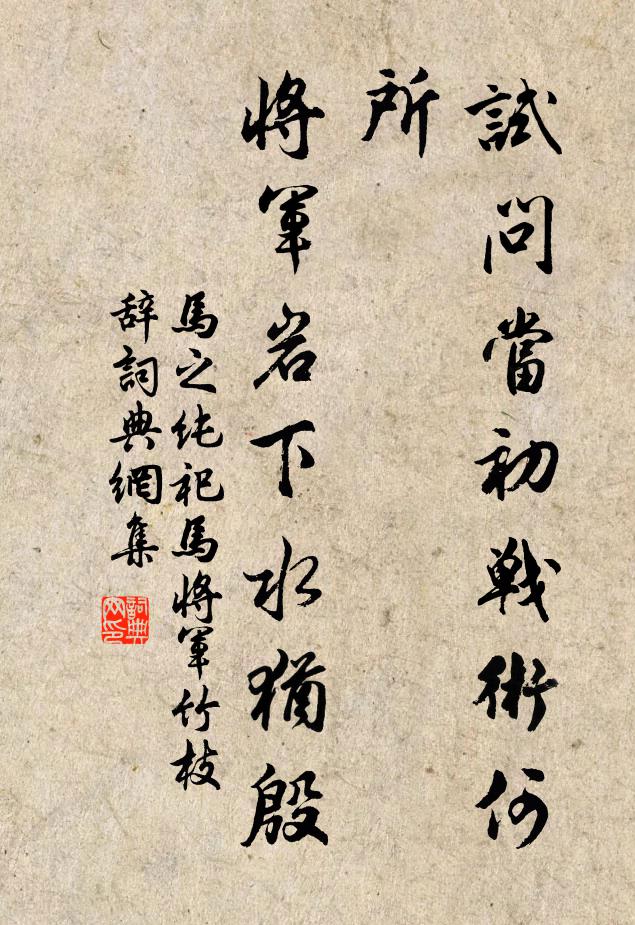 試問當初戰術何
所
將軍岩下水猶殷
馬之純祀馬將軍竹枝
辭詞典網集
詞典
网印